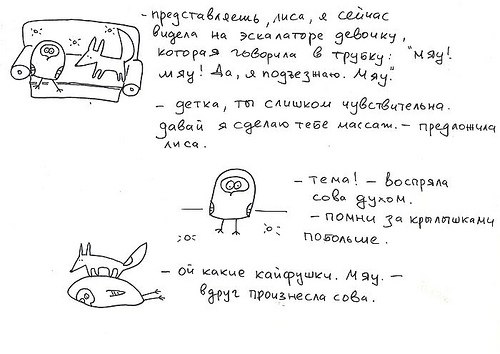 - представляешь, лиса, я сейчас
видела на эскалаторе девочку,
которая говорила в трубку: "мяу!
мяу! Да, я подъезжаю. Мяу."
- детка, ты слишком чувствительна.
давай я сделаю тебе массаж. - предложила
лиса.
- тема! - воспряла
сова духом.
- помни за крылышками
побольше.
- ой какие кайфушки. Мяу. -
вдруг произнесла сова.